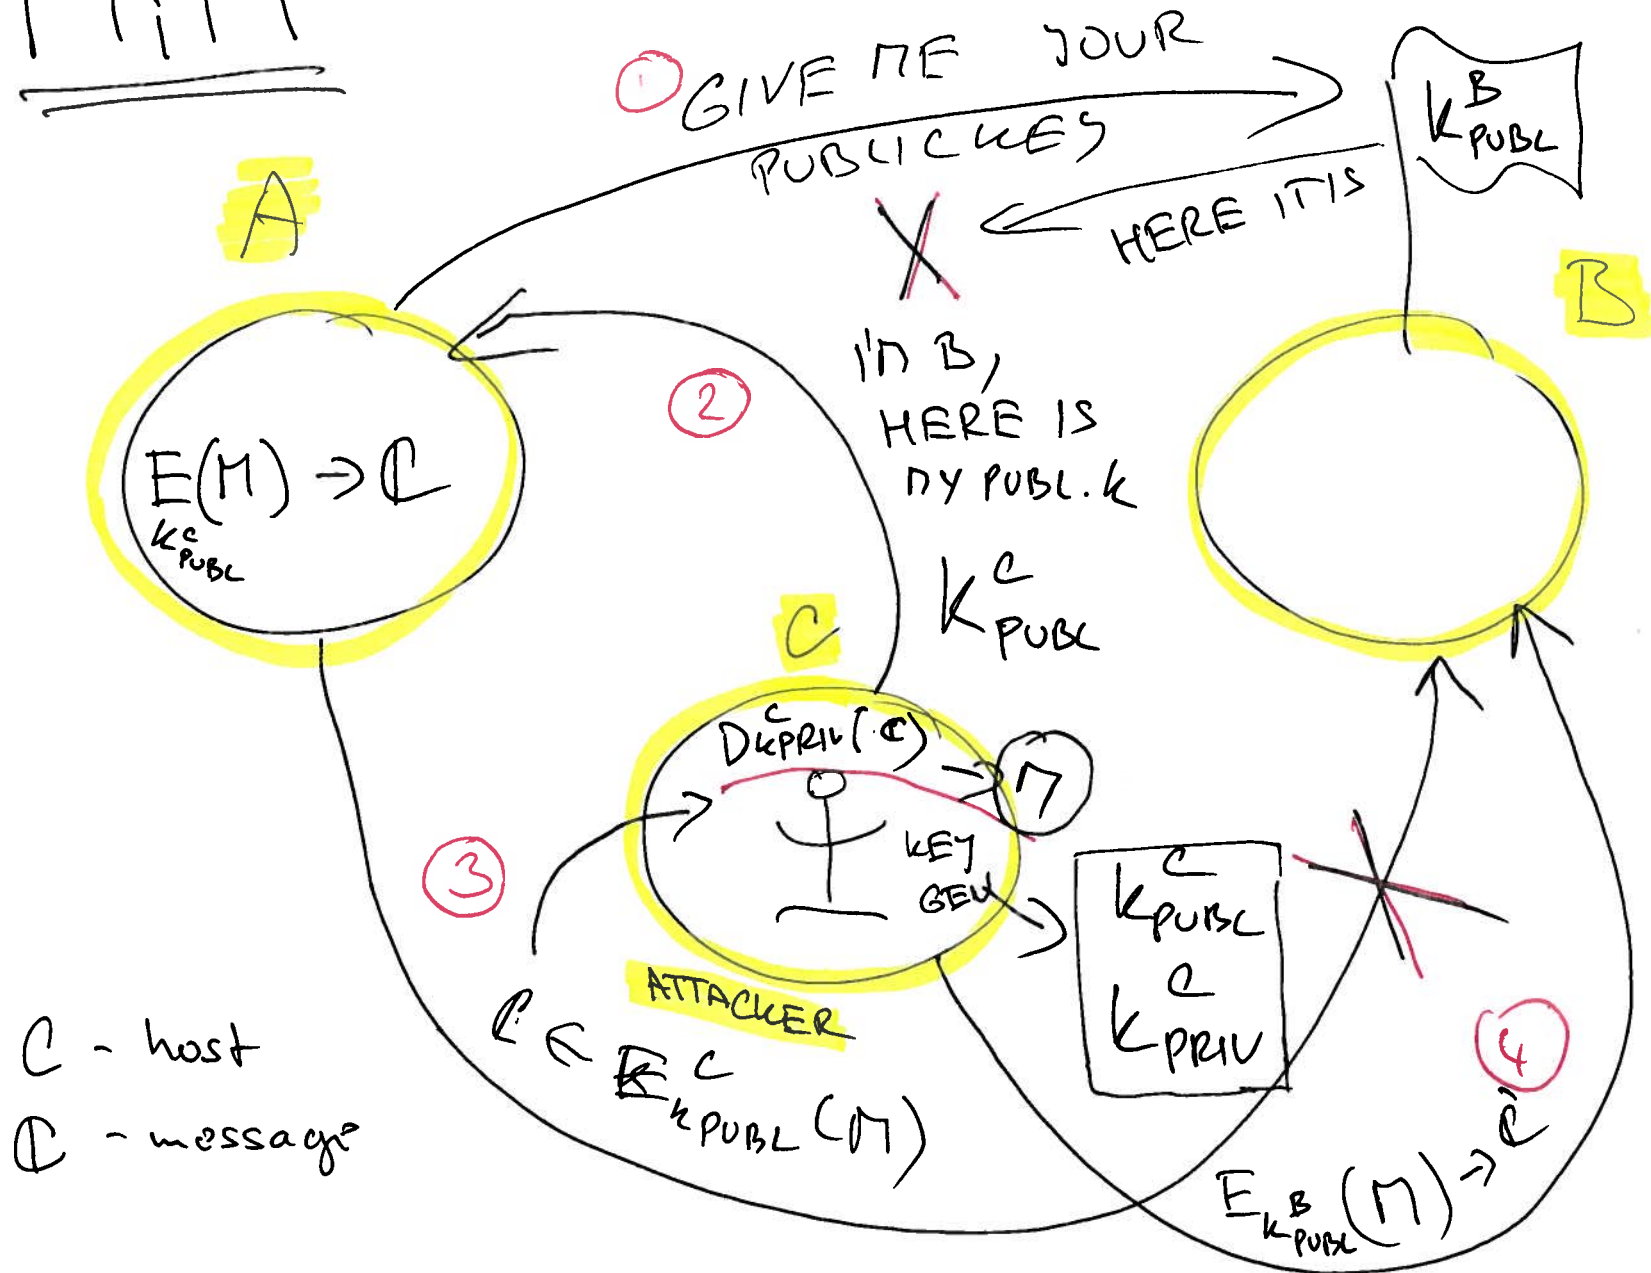 ① GIVE ME YOUR
PUBLIC KEY
K^B_PUBL
HERE IT IS
A
B
②
I'M B,
HERE IS
MY PUBL. K
K^C_PUBL
E(M) → ℂ
K^C_PUBL
C
D_K^C_PRIV(ℂ) → M
KEY
GEN
K^C_PUBL
K^C_PRIV
③
ATTACKER
ℂ ← E_K^C_PUBL(M)
④
E_K^B_PUBL(M) → ℂ
C - host
ℂ - message